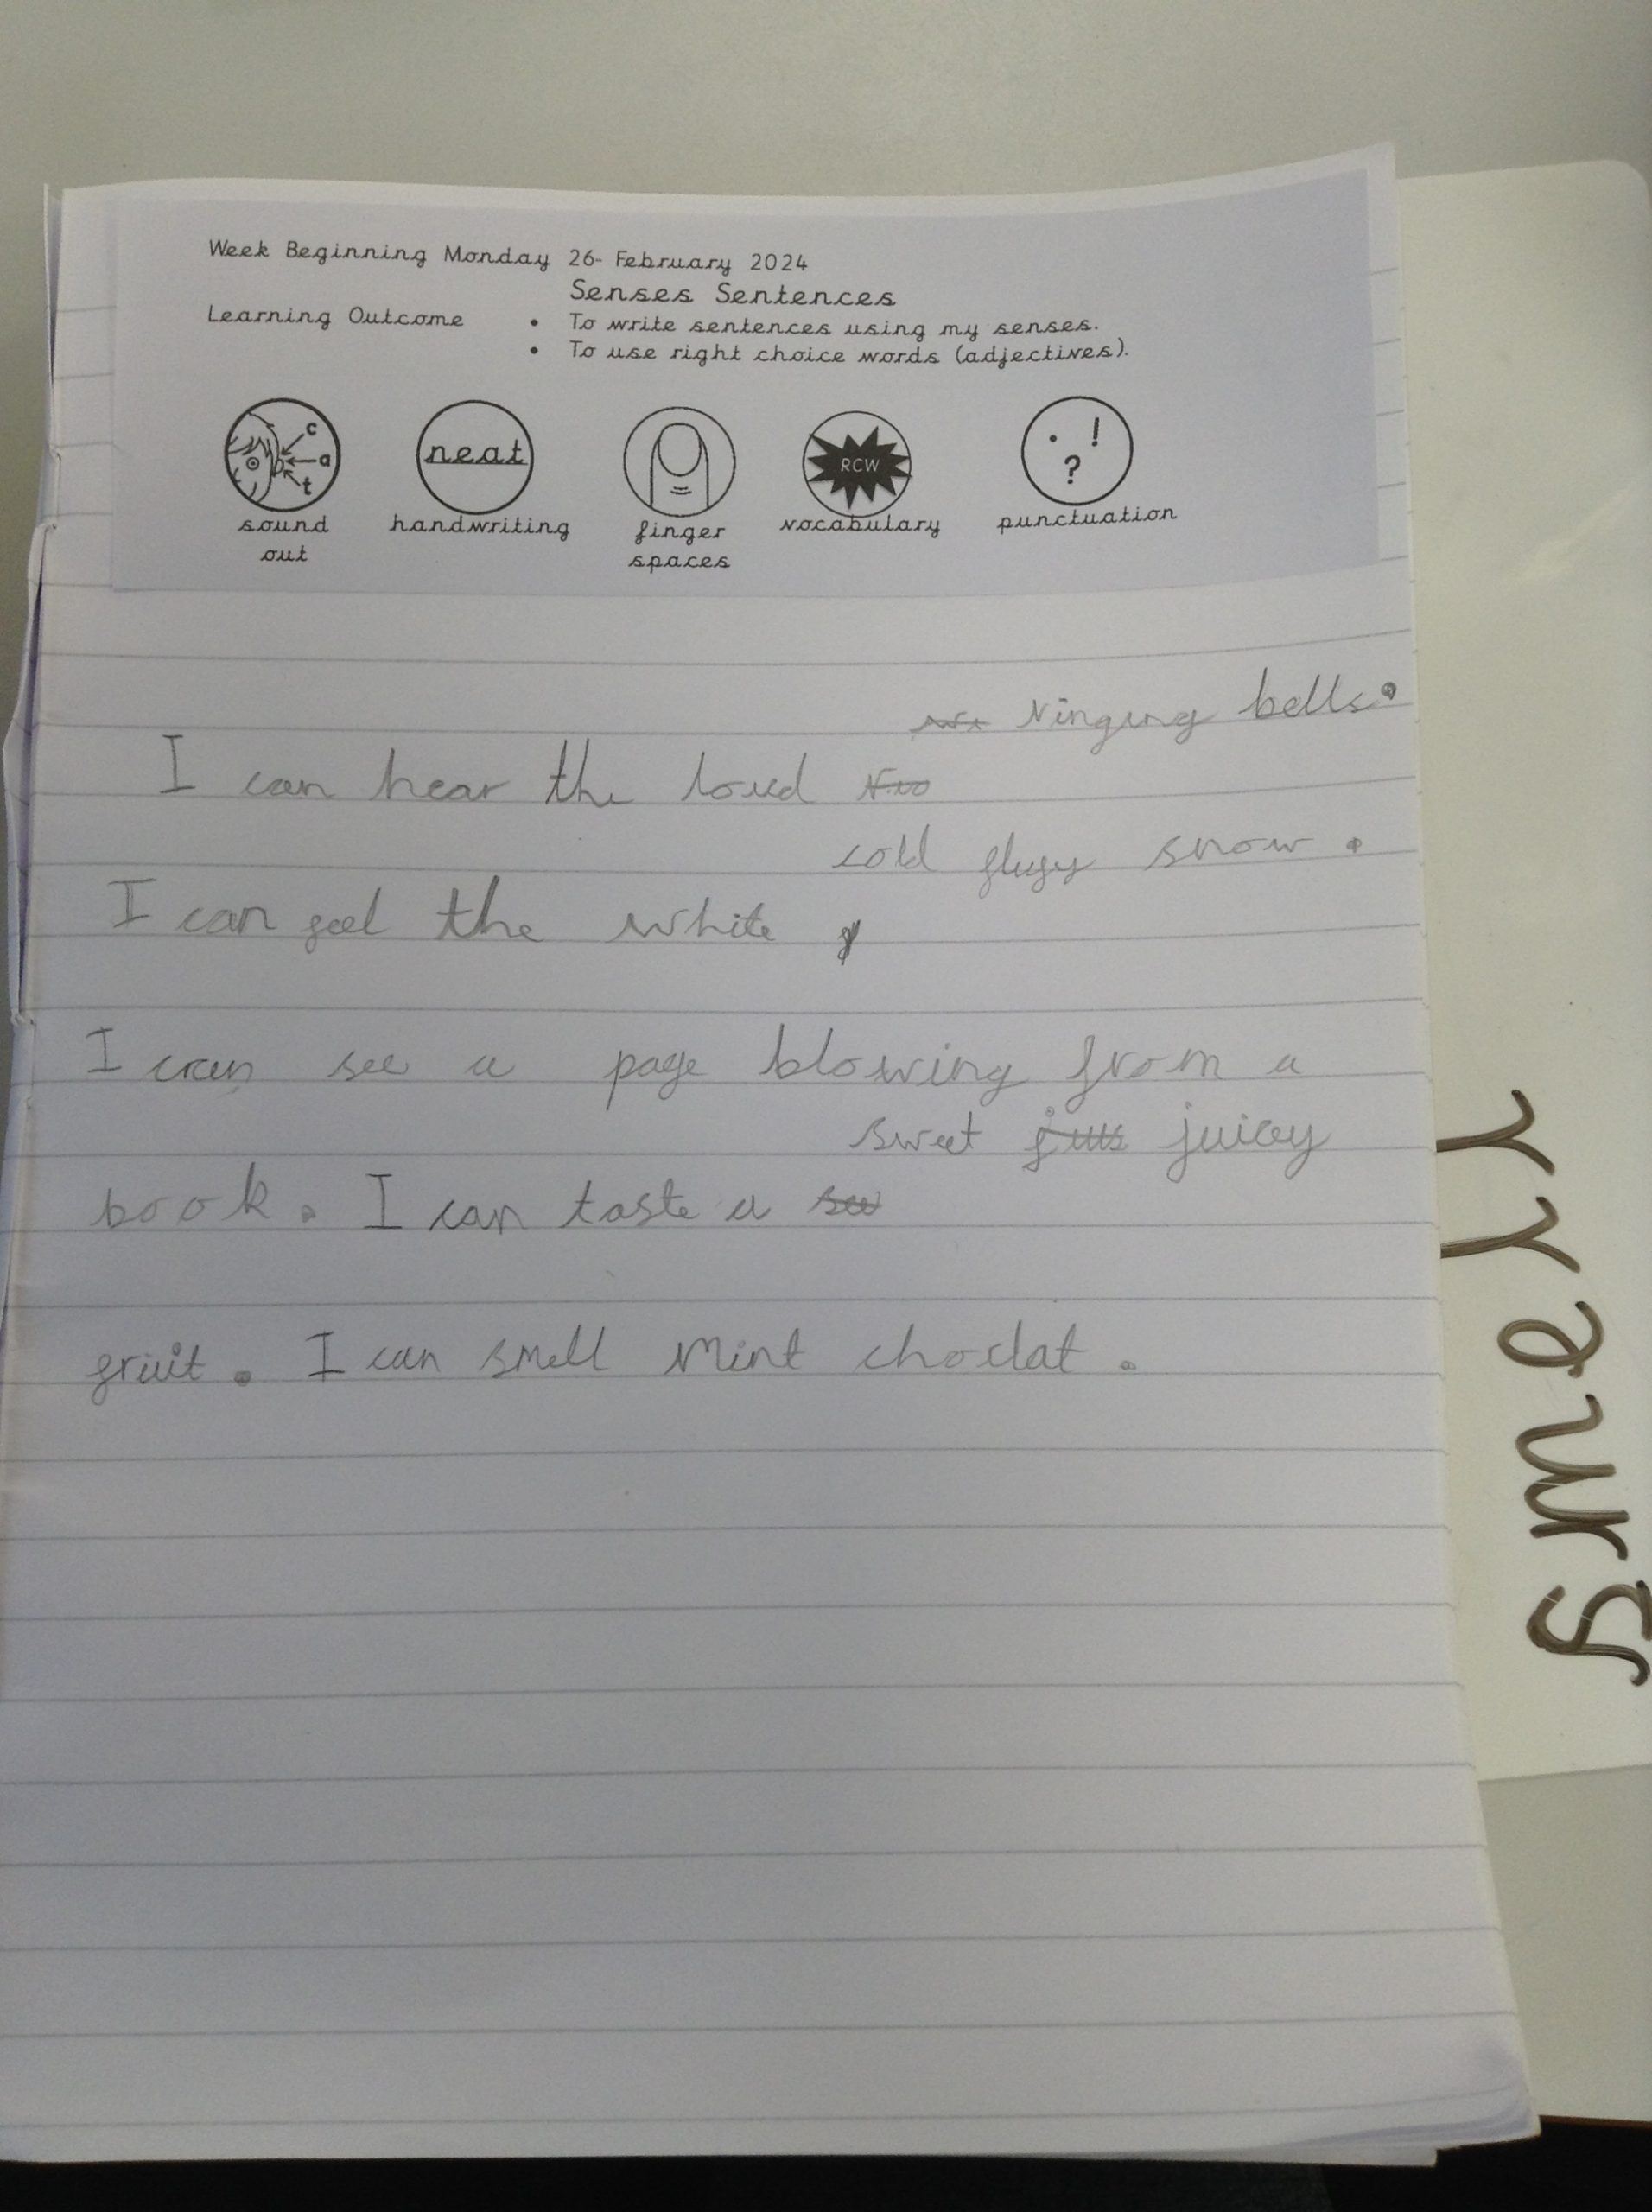 Week Beginning Monday 26 February 2024
Senses Sentences
Learning Outcome • To write sentences using my senses.
• To use right choice words (adjectives).
c
a
t
neat
RCW
. !
?
sound out
handwriting
finger spaces
vocabulary
punctuation
ringing bells.
I can hear the loud
cold flufy snow.
I can feel the white
I can see a page blowing from a
sweet juicey
book. I can taste a
fruit. I can smell mint choclat.